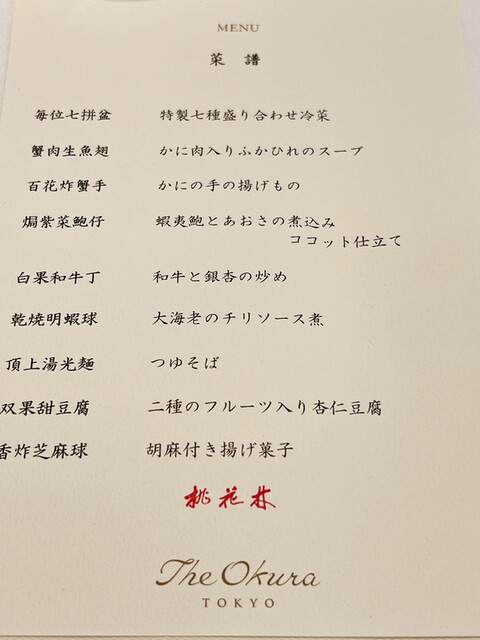 MENU
菜譜
毎位七拼盆 特製七種盛り合わせ冷菜
蟹肉生魚翅 かに肉入りふかひれのスープ
百花炸蟹手 かにの手の揚げもの
焗紫菜鮑仔 蝦夷鮑とあおさの煮込み
ココット仕立て
白果和牛丁 和牛と銀杏の炒め
乾焼明蝦球 大海老のチリソース煮
頂上湯光麵 つゆそば
双果甜豆腐 二種のフルーツ入り杏仁豆腐
香炸芝麻球 胡麻付き揚げ菓子
桃花林
The Okura
TOKYO